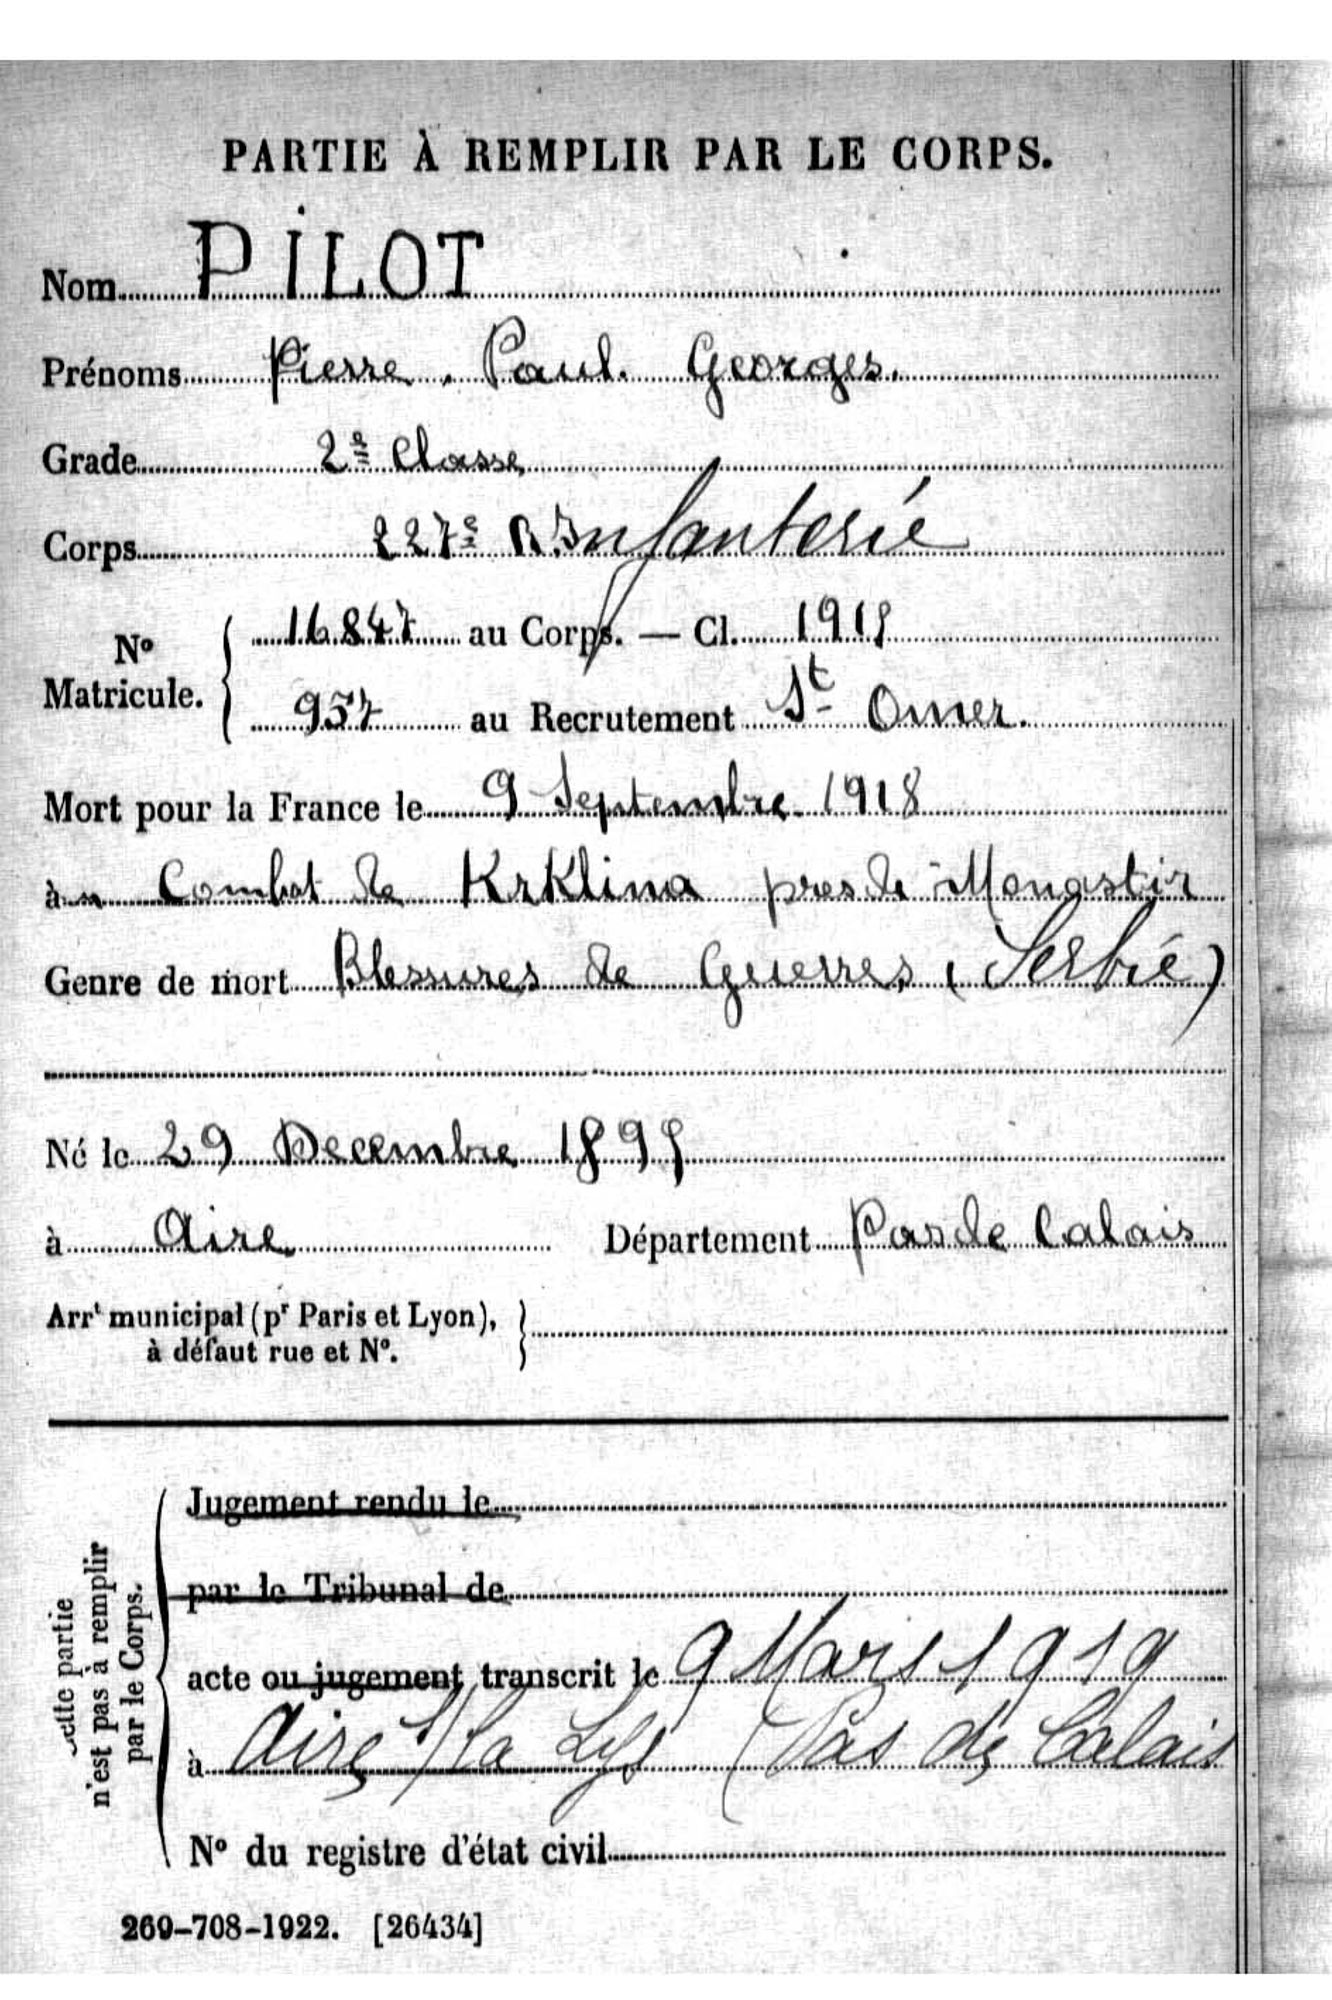 PARTIE À REMPLIR PAR LE CORPS.
Nom PILOT
Prénoms Pierre. Paul. Georges.
Grade 2e Classe
Corps 227e R. Infanterie
No Matricule. 16847 au Corps. — Cl. 1915
957 au Recrutement St Omer.
Mort pour la France le 9 Septembre 1918
à Combat de Krklina pres de Monastir
Genre de mort Blessures de Guerres (Serbie)
Né le 29 Decembre 1895
à Aire Département Pas de Calais
Arrt municipal (pr Paris et Lyon),
à défaut rue et No.
Cette partie
n'est pas à remplir
par le Corps.
Jugement rendu le
par le Tribunal de
acte ou jugement transcrit le 9 Mars 1919
à Aire s/ la Lys (Pas de Calais
No du registre d'état civil
269-708-1922. [26434]